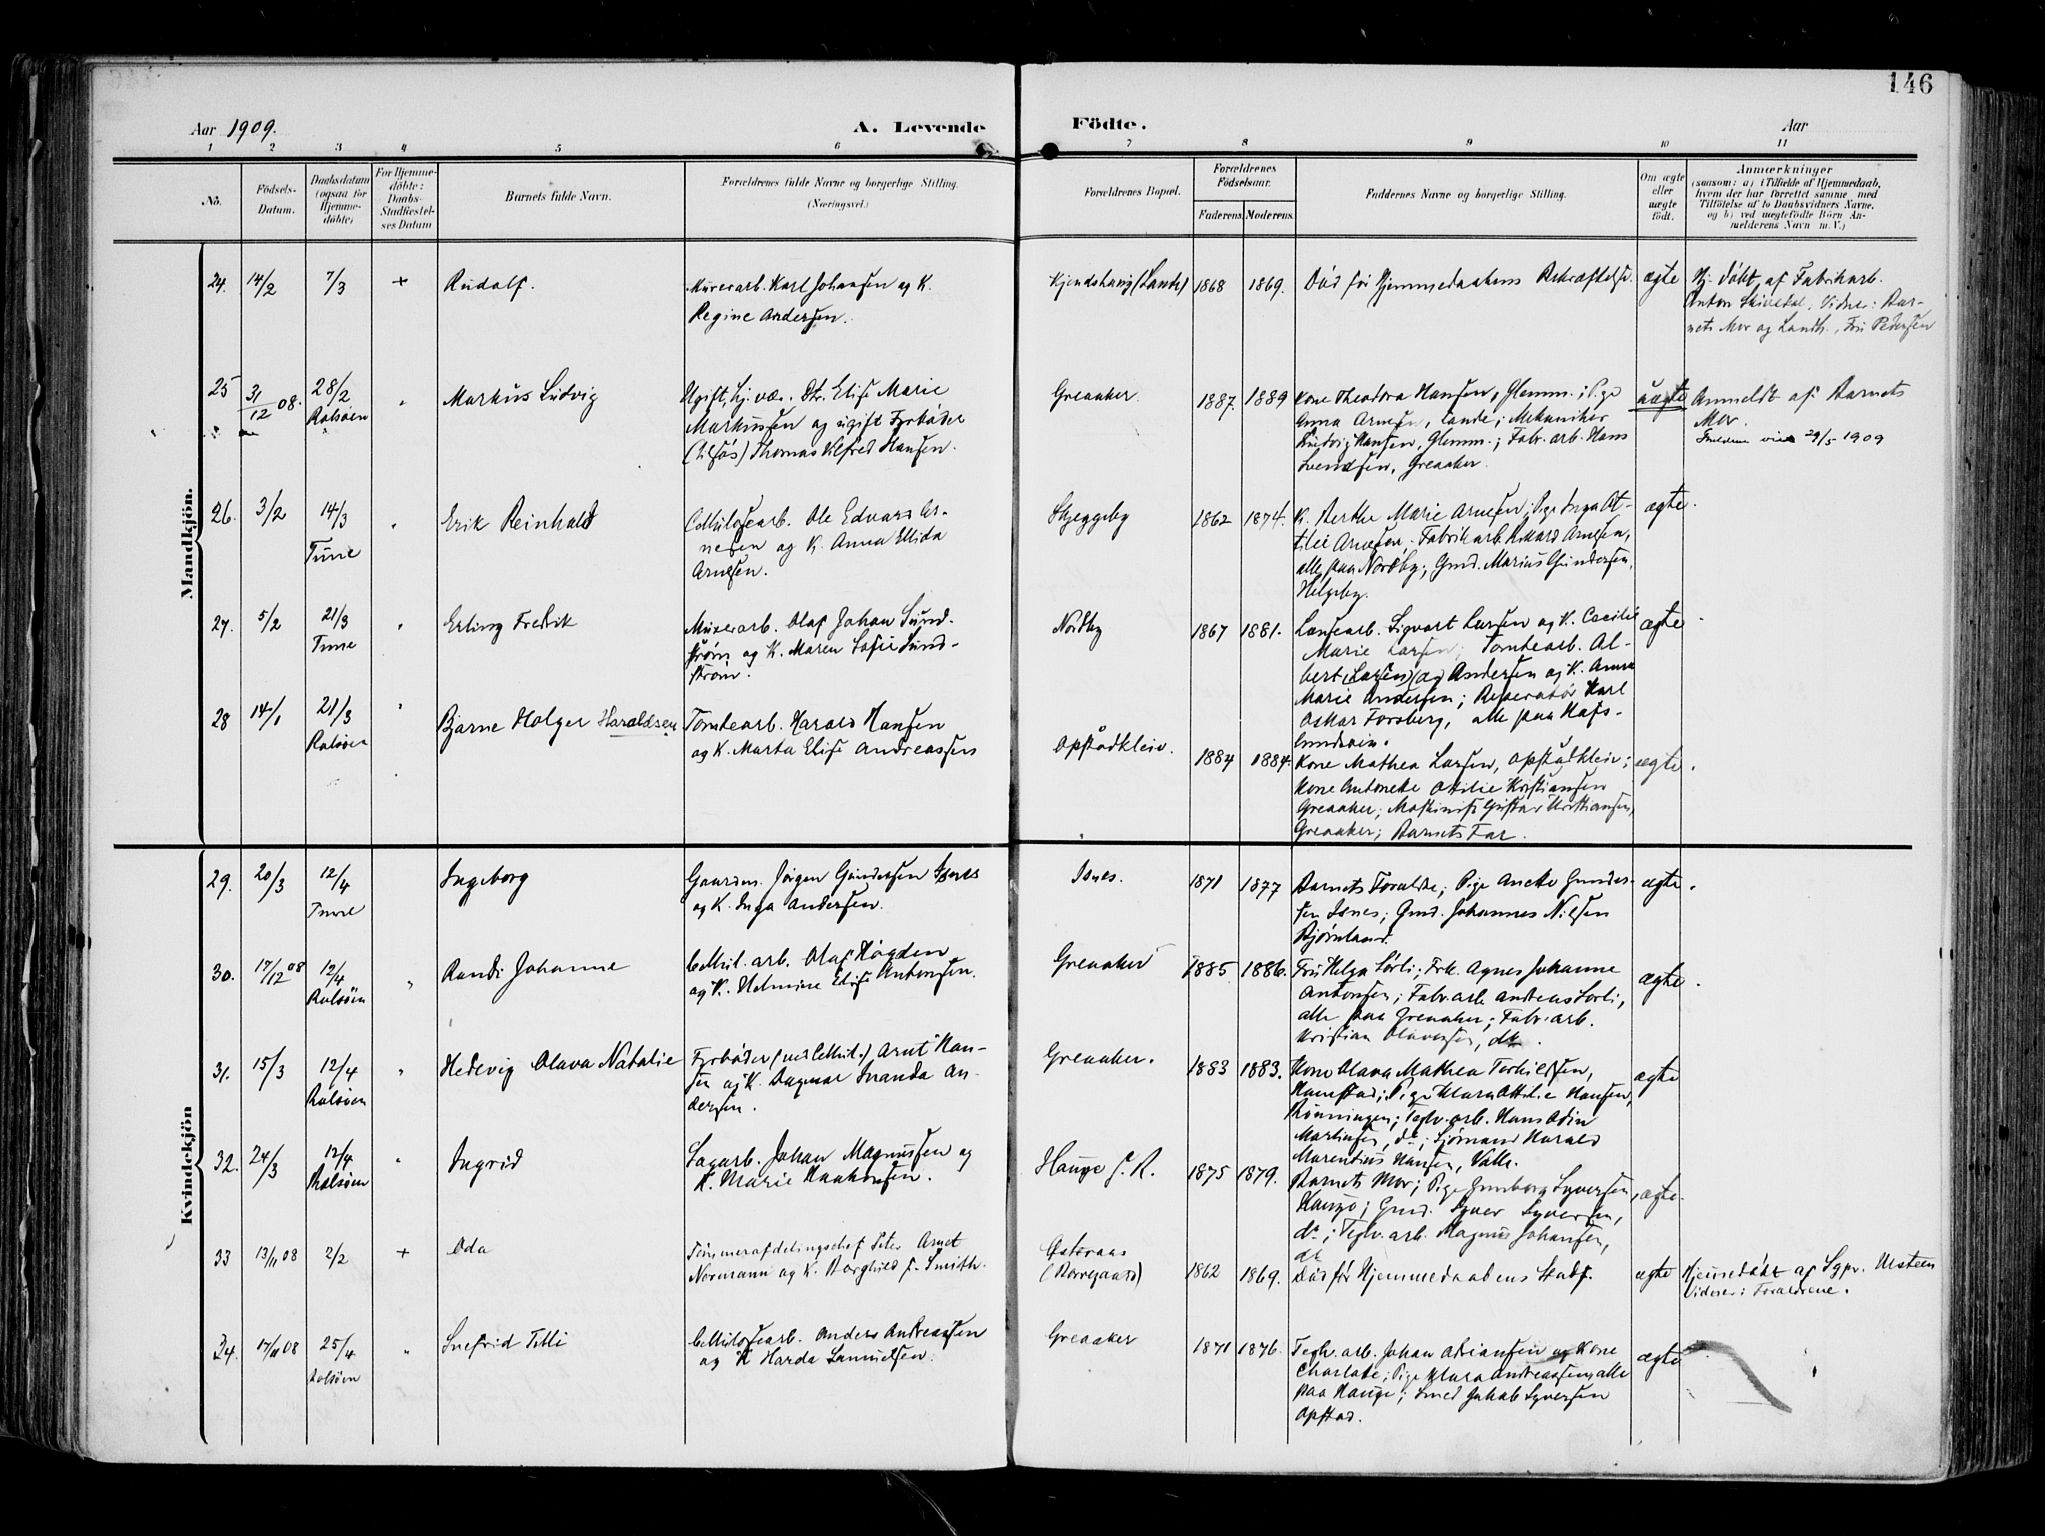 146
Aar 1909. A. Levende Födte. Aar
1 2 3 4 5 6 7 8 9 10 11
No. Födsels-Datum. Daabsdatum (ogsaa for Hjemme-döbte) For Hjemme-döbte: Daabs-Stadfæstel-ses Datum Barnets fulde Navn. Forældrenes fulde Navne og borgerlige Stilling. (Næringsvei.) Forældrenes Bopæl. Forældrenes Födselsaar. Faderens. Moderens. Faddernes Navne og borgerlige Stilling. Om ægte eller uægte födt. Anmærkninger (saasom: a) i Tilfælde af Hjemmedaab, hvem der har forrettet samme med Tilföielse af to Daabsvidners Navne, og b) ved uægtefödte Börn An-melderens Navn m. V.)
Mandkjön.
24. 14/2 7/3 + Rudolf. Murerarb. Karl Johansen og K.
Regine Andersen.
Kjendshaug (Lande) 1868 1869. Død før Hjemmedaabens Bekræftelse. ægte Hj. døbt af Fabrikarb.
Anton Skivedal, Vidner: Bar-
nets Mor og Landh., Fru Pedersen
25 31/12 08. 28/2 Rolsöen " Markus Ludvig Ugift, hj. væ. Dt. Elise Marie
Markussen og ugift Fyrbøder
Thomas Alfred Hansen.
Greaaker. 1887. 1889 Kone Theodora Hansen, Glemm.; Pige
Anna Arnesen, Lande; Mekaniker
Ludvig Hansen, Glemm.; Fabr. arb. Hans
Svendsen, Greaaker.
uægte Anmeldt af Barnets
Mor.
29/5 1909
26. 3/2 14/3 Tune " Erik Reinhold Cellulosearb. Ole Edvard Ar-
nesen og K. Anna Ellida
Arnesen.
Skjeggeby 1862 1874. K. Berthe Marie Arnesen; Pige Inga Ot-
tilie Arnesen. Fabrikarb. Rikard Arnesen,
alle paa Nordby; Gmd. Marius Gundersen,
Helgeby.
ægte.
27. 5/2 21/3 Tune " Erling Fredrik Murerarb. Olaf Johan Sund-
strøm og K. Maren Sofie Sund-
strøm.
Nordby 1867 1881. Lansearb. Sigvart Larsen og K. Cecilie
Marie Larsen; Tomtearb. Al-
bert (Larsen) (a) Andersen og K. Anna
Marie Andersen; Reparatør Karl
Oskar Forsberg, alle paa Hafs-
lundsøen.
ægte.
28 14/1 21/3 Rolsöen " Bjarne Holger Haraldsen Tomtearb. Harald Hansen
og K. Marta Elise Andreassen
Opstadkleiv. 1884 1884. Kone Mathea Larsen, Opstadkleiv;
Kone Antonette Otilie Kristiansen
Greaaker; Maskinist Gustav Kristiansen,
Greaaker; Barnets Far.
ægte.
Kvindekjön
29. 20/3 12/4 Tune Ingeborg Gaardm. Jørgen Gundersen Isnes
og K. Inga Andersen.
Isnes. 1871 1877 Barnets Forældre; Pige Anette Gunder-
sen Isnes; Gmd. Johannes Nilsen
Bjørnland.
ægte.
30. 17/12 08 12/4 Rolsöen " Randi Johanne Cellul. arb. Olaf Høgden
og K. Helmine Elise Antonsen.
Greaaker 1885. 1886. Fru Helga Sørli; Frk. Agnes Johanne
Antonsen; Fabr. arb. Andreas Sørli,
alle paa Greaaker; Fabr. arb.
Kristian Olavesen, do.
ægte.
31. 15/3 12/4 Rolsöen " Hedevig Olava Natalie Fyrbøder (ved Cellul.) Arnt Han-
sen og K. Dagmar Svanda An-
dersen.
Greaaker. 1883 1883. Kone Olava Mathea Terkildsen,
Hannestad; Pige Klara Ottilie Hansen,
Rønningen; Teglv. arb. Hans Odin
Martinsen, do; Sjømand Harald
Marentius Hansen, Valle.
ægte
32. 24/3 12/4 Rolsöen " Ingrid Sagarb. Johan Magnussen og
K. Marie Haakonsen.
Hauge s. R. 1875 1879. Barnets Mor; Pige Gunborg Syversen,
Hauge; Gmd. Syver Syversen,
do; Teglv. arb. Magnus Johansen,
do
ægte.
33 13/11 08 2/2 + Oda Tømmerafdelingschef Peter Arnet
Normann og K. Borghild f. Smith.
Østeraas
(Borregaard) 1862 1869. Død før Hjemmedaabens Stadf. ægte Hjemmedøbt af Sgpr. Ursteen
Vidner: Forældrene.
34. 17/11 08 25/4 Rolsöen " Snefrid Tilli Cellulosearb. Anders Andreassen
og K Harda Samuelsen.
Greaaker 1871 1876. Teglv. arb. Johan Adriansen og Kone
Charlotte; Pige Klara Andreassen, alle
paa Hauge; Smed Jakob Syversen
Opstad.
ægte